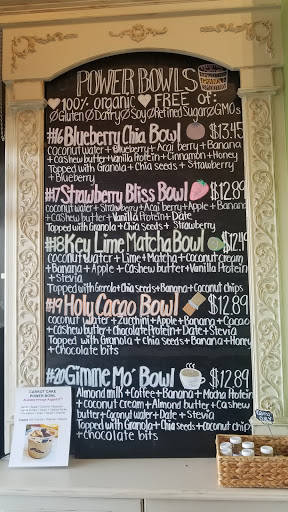 POWER BOWLS
100% organic FREE of:
ØGluten ØDairy ØSoy ØRefined Sugar ØGMOs
#16 Blueberry Chia Bowl $13.45
coconut water + Blueberry + Acai berry + Banana
+ Cashew butter + Vanilla Protein + Cinnamon + Honey
Topped with Granola + Chia seeds + Strawberry
+ Blueberry
#17 Strawberry Bliss Bowl $12.89
coconut water + Strawberry + Acai berry + Apple + Banana
+ Cashew butter + Vanilla Protein + Date
Topped with Granola + Chia seeds + Strawberry
#18 Key Lime Matcha Bowl $12.49
Coconut water + Lime + Matcha + Coconut cream
+ Banana + Apple + Cashew butter + Vanilla Protein
+ Stevia
Topped with Granola + Chia seeds + Banana + Coconut chips
#19 Holy Cacao Bowl $12.89
Coconut Water + Zucchini + Apple + Banana + Cacao
+ Cashew butter + Chocolate Protein + Date + Stevia
Topped with Granola + Chia seeds + Banana + Honey
+ Chocolate bits
#20 Gimme Mo' Bowl $12.89
Almond milk + Coffee + Banana + Mocha Protein
+ Coconut Cream + Almond butter + Cashew
butter + Coconut water + Date + Stevia
Topped with Granola + Chia seeds + Coconut chips
+ chocolate bits
CARROT CAKE
POWER BOWL